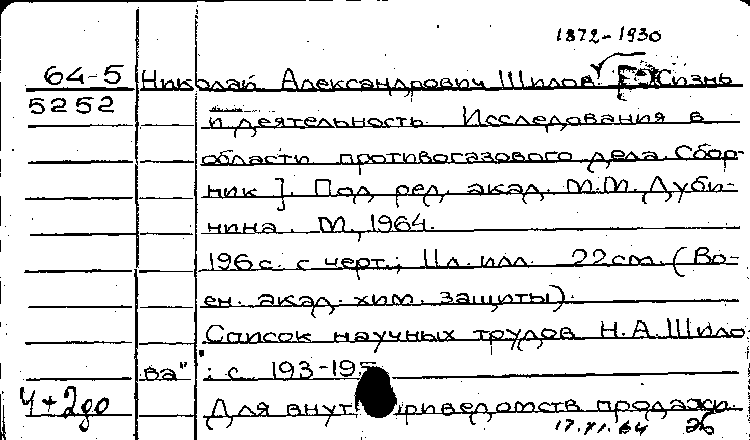 1872-1930
64-5 Николай Александрович Шилов. [Жизнь
5252 и деятельность. Исследования в
области противогазового дела. Сбор-
ник]. Под ред. акад. М.М. Дуби-
нина. М., 1964.
196 с. с черт.; 11 л. илл. 22 см. (Во-
ен. акад. хим. защиты).
Список научных трудов Н.А. Шило
ва": с. 193-195
Для внут приведомств продажи.
17.VI.64